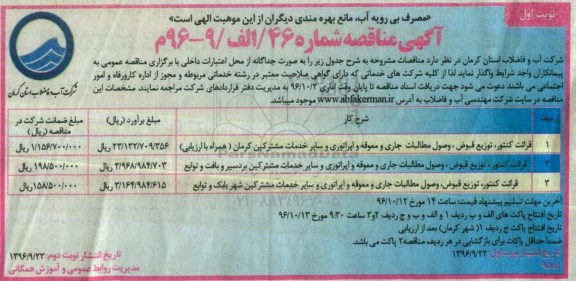 نوبت اول
«مصرف بی رویه آب، مانع بهره مندی دیگران از این موهبت الهی است»
آگهی مناقصه شماره ۴۶/الف/۹-۹۶م
شرکت آب و فاضلاب استان کرمان
شرکت آب و فاضلاب استان کرمان در نظر دارد مناقصات مشروحه به شرح جدول زیر را به صورت جداگانه از محل اعتبارات داخلی با برگزاری مناقصه عمومی به
پیمانکاران واجد شرایط واگذار نماید. لذا از کلیه شرکت های خدماتی که دارای گواهی صلاحیت معتبر در رشته خدماتی مربوطه و مجوز از اداره کارورفاه و امور
اجتماعی می باشند دعوت می شود جهت دریافت اسناد مناقصه تا پایان وقت اداری ۹۶/۱۰/۳ به مدیریت دفتر قراردادهای شرکت مراجعه نمایند. مشخصات این
مناقصه در سایت شرکت مهندسی آب و فاضلاب به آدرس www.abfakerman.ir موجود میباشد.
ردیف شرح کار مبلغ برآورد (ریال) مبلغ ضمانت شرکت در مناقصه (ریال)
۱ قرائت کنتور، توزیع قبوض، وصول مطالبات جاری و معوقه و اپراتوری و سایر خدمات مشترکین کرمان (همراه با ارزیابی) ۲۳/۱۳۲/۷۰۹/۳۵۶ ۱/۱۵۶/۷۰۰/۰۰۰
۲ قرائت کنتور، توزیع قبوض، وصول مطالبات جاری و معوقه و اپراتوری و سایر خدمات مشترکین بردسیر و بافت و توابع ۳/۹۶۸/۹۸۴/۷۰۳ ۱۹۸/۵۰۰/۰۰۰
۳ قرائت کنتور، توزیع قبوض، وصول مطالبات جاری و معوقه و اپراتوری و سایر خدمات مشترکین شهر بابک و توابع ۳/۱۶۴/۹۸۴/۶۱۵ ۱۵۸/۵۰۰/۰۰۰
آخرین مهلت تسلیم پیشنهاد قیمت: ساعت ۱۴ مورخ ۹۶/۱۰/۱۲
تاریخ افتتاح پاکت های الف و ب ردیف ۱ و الف و ب و ج ردیف ۲و۳ ساعت ۹:۳۰ مورخ ۹۶/۱۰/۱۳
تاریخ افتتاح پاکت ج ردیف ۱ (شهر کرمان) بعد از ارزیابی
ضمنا حداقل پاکات برای بازگشایی در هر ردیف مناقصه ۲ پاکت می باشد.
تاریخ انتشار نوبت اول: ۹۶/۹/۲۲
تاریخ انتشار نوبت دوم: ۱۳۹۶/۹/۲۳
مدیریت روابط عمومی و آموزش همگانی